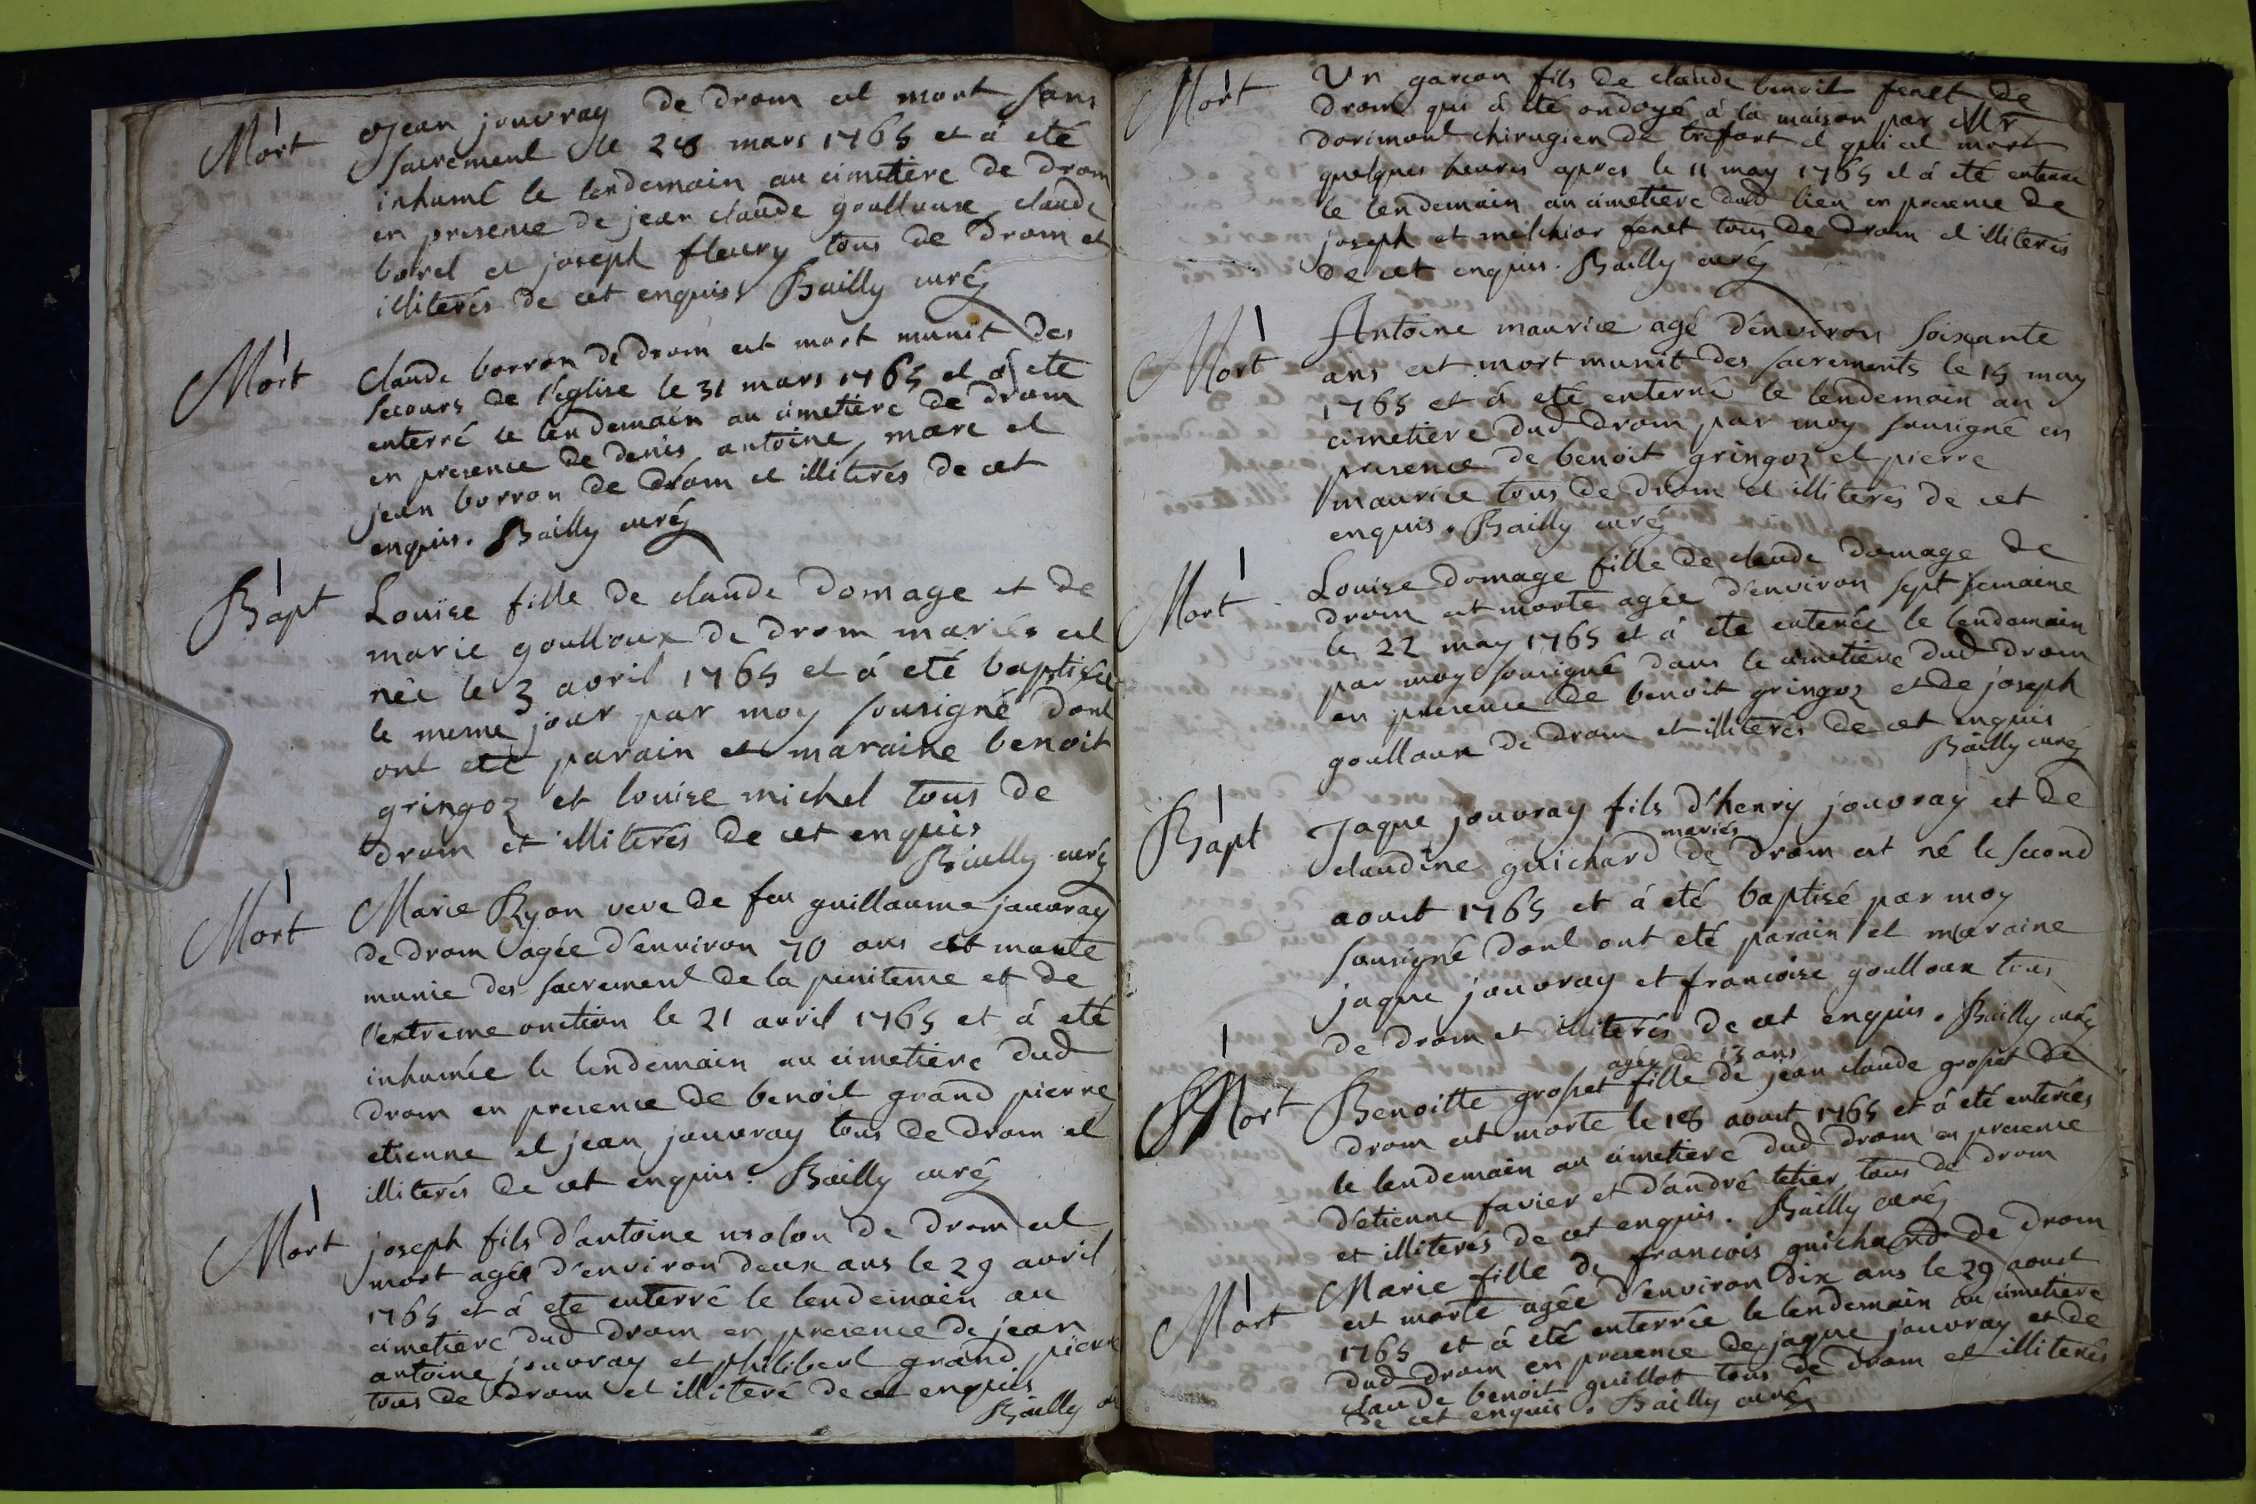 Mort
Jean jouvray de drom est mort sans
sacrement le 28 mars 1765 et á eté
inhumé le lendemain au cimetière de drom
en presence de jean claude goulloux claude
borel et joseph fleury tous de drom et
illiterés de cet enquis Bailly curé
Mort
Claude borron de drom est mort munit des
secours de l'eglise le 31 mars 1765 et á eté
enterré le lendemain au cimetière de drom
en presence de denis antoine, marc et
jean borron de drom et illiterés de cet
enquis. Bailly curé
Bapt
Louise fille de claude domage et de
marie goulloux de drom mariés est
née le 3 avril 1765 et á eté baptisée
le meme jour par moy sousigné dont
ont eté parain et maraine benoit
gringoz et louise michel tous de
drom et illiterés de cet enquis
Bailly curé
Mort
Marie Ryon veve de feu guillaume jouvray
de drom agée d'environ 70 ans est morte
munie des sacrement de la penitence et de
l'extreme onction le 21 avril 1765 et á eté
inhumée le lendemain au cimetiere dud
drom en presence de benoit grand pierre
etienne et jean jouvray tous de drom et
illiterés de cet enquis. Bailly curé
Mort
joseph fils d'antoine de drom est
mort agée d'environ deux ans le 29 avril
1765 et á eté enterré le lendemain au
cimetiere dud drom en presence de jean
antoine jouvray et philibert grand pierre
tous de drom et illiteré de cet enquis
Bailly
Mort
Un garcon fils de claude benoit fenet de
drom qui á eté ondoyé á la maison par Mr
dorimont chirugien de trefort et qui est mort
quelques heures apres le 11 may 1765 et á eté enterré
le lendemain au cimetiere dud lieu en presence de
joseph et melchior fenet tous de drom et illiterés
de cet enquis. Bailly curé
Mort
Antoine maurice agé d'environ soixante
ans est mort munit des sacrements le 15 may
1765 et á eté enterré le lendemain au
cimetiere dud drom par moy sousigné en
presence de benoit gringoz et pierre
maurice tous de drom et illiterés de cet
enquis. Bailly curé
Mort
Louise domage fille de claude domage de
drom est morte agée d'environ sept semaine
le 22 may 1765 et á eté enterée le lendemain
par moy sousigné dans le cimetiere dud drom
en presence de benoit gringoz et de joseph
goulloux de drom et illiterés de cet enquis
Bailly curé
Bapt
Jaque jouvray fils d'henry jouvray et de
mariés
claudine guichard de drom est né le second
aoust 1765 et á eté baptisé par moy
sousigné dont ont eté parain et maraine
jaque jouvray et francoise goulloux tous
de drom et illiterés de cet enquis. Bailly curé
Mort
agee de 13 ans
Benoitte groset fille de jean claude groset de
drom est morte le 18 aoust 1765 et á eté enterées
le lendemain au cimetiere dud drom en presence
d'etienne favier et d'andré tetier tous de drom
et illiterés de cet enquis. Bailly curé
Mort
Marie fille de francois guichard de drom
est morte agée d'environ dix ans le 29 aoust
1765 et á eté enterrée le lendemain au cimetiere
dud drom en presence de jaque jouvray et de
claude benoit guillot tous de drom et illiterés
de cet enquis. Bailly curé